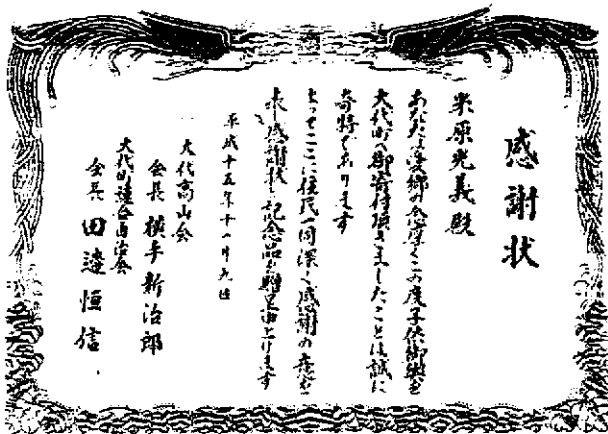 感謝状
米原光義殿
あなたは愛郷の念厚くこの度子供御輿を
大代町へ御寄付頂きましたことは誠に
奇特であります
よってここに住民一同深く感謝の意を
表し感謝状と記念品を贈呈申上げます
平成十五年十一月九日
大代高山会
会長 横手新治郎
大代町連合自治会
会長 田邊恒信